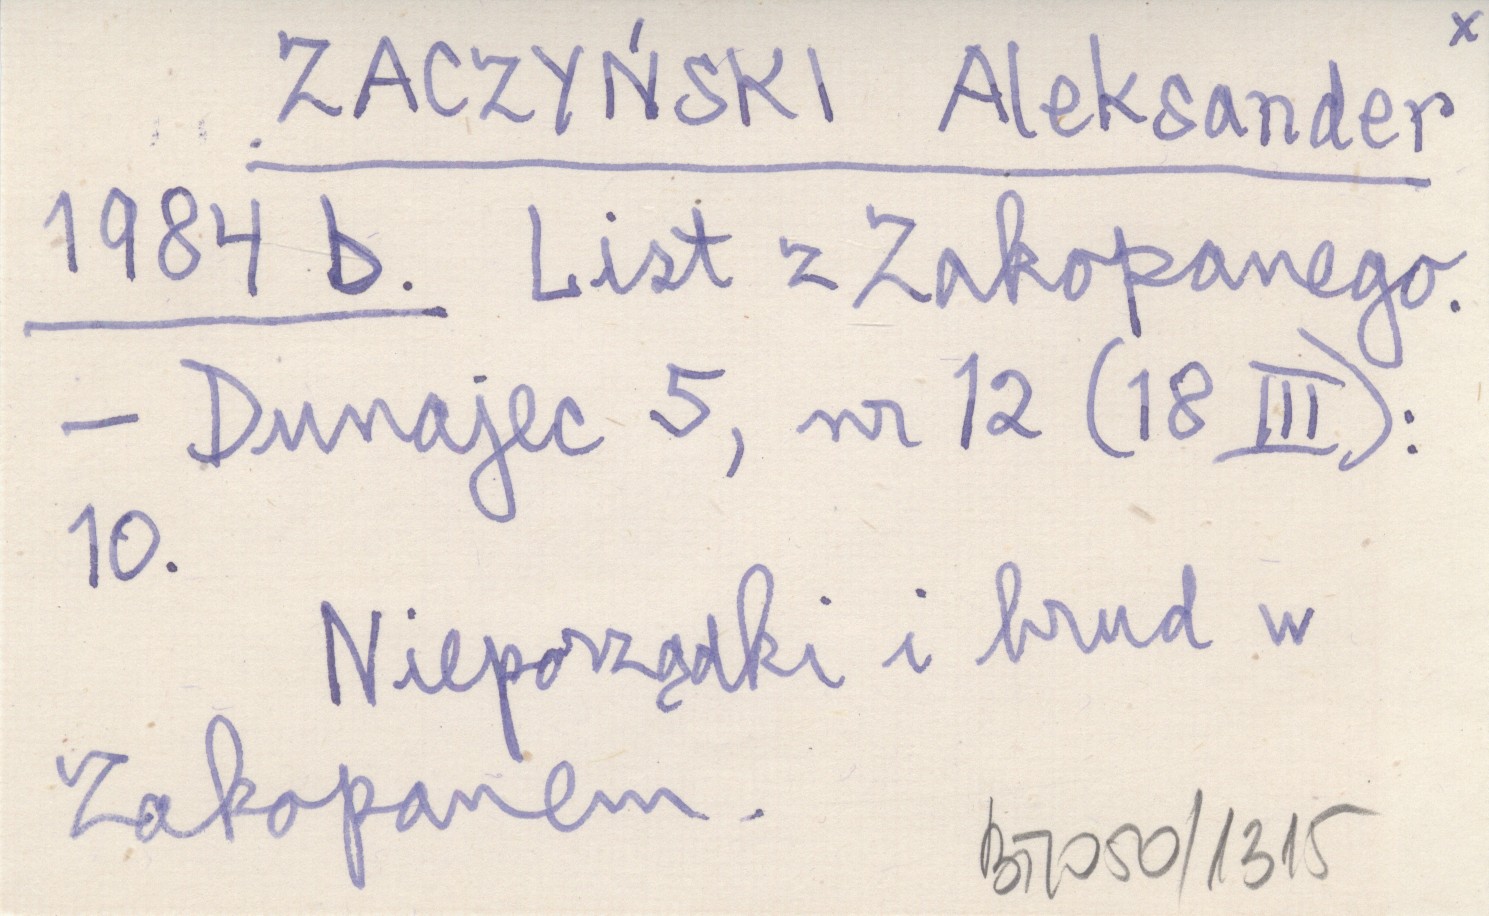 x
ZACZYŃSKI Aleksander
1984 b. List z Zakopanego.
– Dunajec 5, nr 12 (18 III):
10.
Nieporządki i brud w
Zakopanem.
050/1315